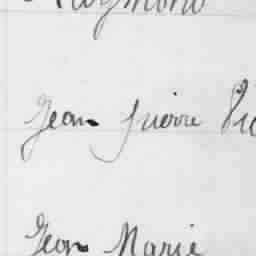 Raymond
Jean Pierre
Jean Marie